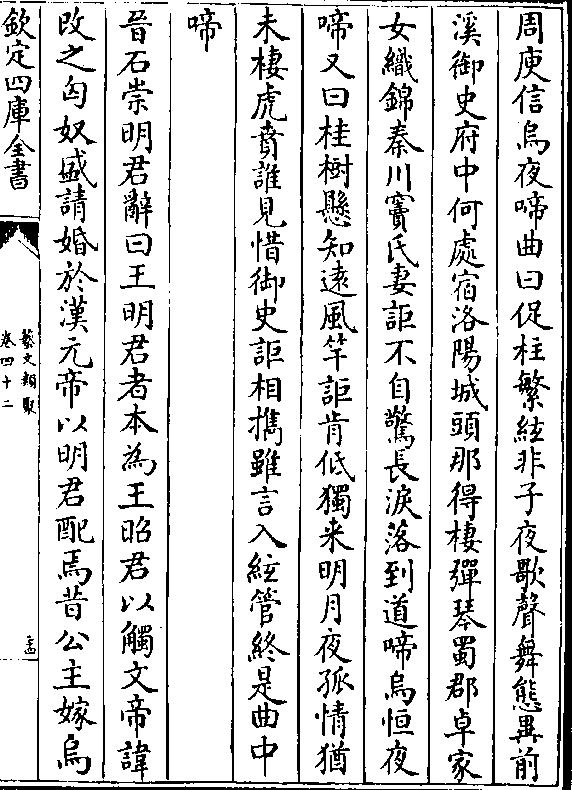 周庾信烏夜啼曲曰促柱繁絃非子夜歌聲舞態異前
溪御史府中何處宿洛陽城頭那得棲彈琴蜀郡卓家
女織錦秦川竇氏妻詎不自驚長淚落到道啼烏恒夜
啼又曰桂樹懸知遠風竿詎肯低獨来明月夜孤情猶
未棲虎賁誰見惜御史詎相擕雖言入絃管終是曲中
啼
晉石崇明君辭曰王明君者本為王昭君以觸文帝諱
改之匈奴盛請婚於漢元帝以明君配焉昔公主嫁烏
欽定四庫全書
藝文類聚
卷四十二